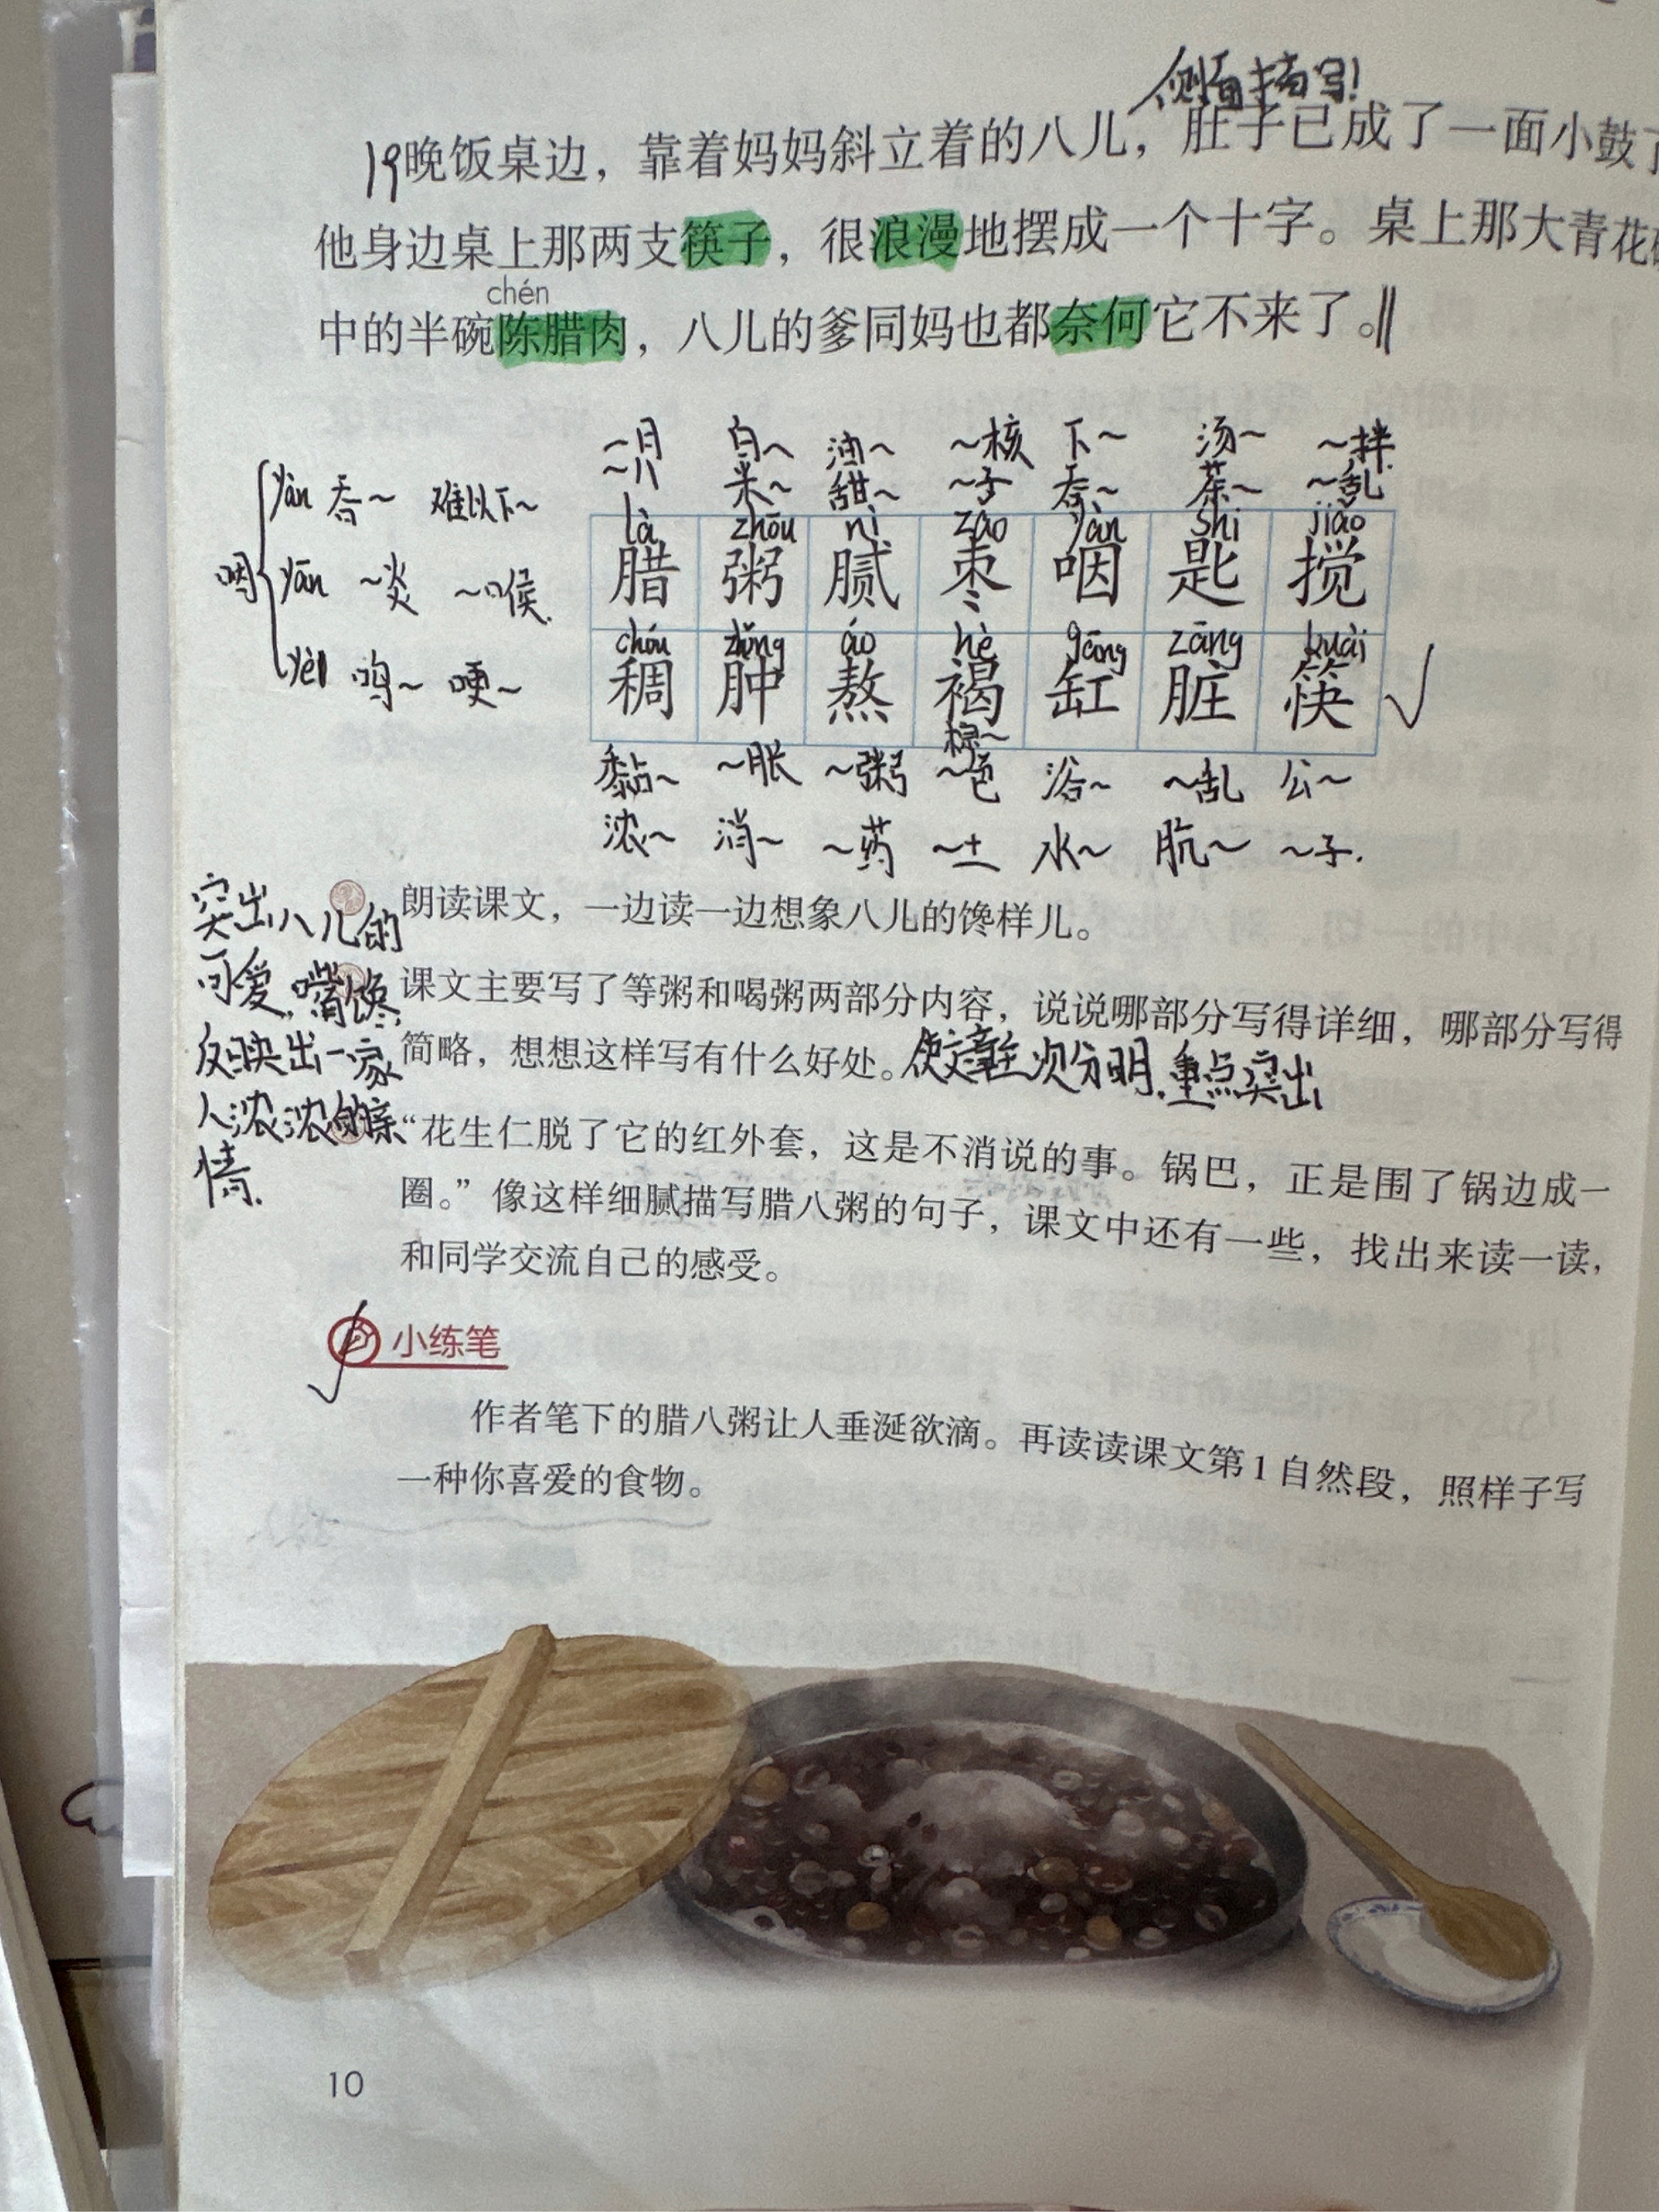 侧面描写!
19晚饭桌边，靠着妈妈斜立着的八儿，肚子已成了一面小鼓了
他身边桌上那两支筷子，很浪漫地摆成一个十字。桌上那大青花碗
chén
中的半碗陈腊肉，八儿的爹同妈也都奈何它不来了。
~月 白~ 油~ ~核 下~ 汤~ ~拌
~八 米~ 甜~ ~子 吞~ 茶~ ~乱
yàn 吞~ 难以下~
咽 yān ~炎 ~喉
yè 呜~ 哽~
là zhōu nì zǎo yàn shi jiǎo
腊 粥 腻 枣 咽 匙 搅
chóu zhǒng áo hè gāng zāng kuài
稠 肿 熬 褐 缸 脏 筷
棕~
黏~ ~胀 ~粥 ~色 浴~ ~乱 公~
浓~ 消~ ~药 ~土 水~ 肮~ ~子.
突出八儿的
可爱,嘴馋
反映出一家
人浓浓的亲
情.
朗读课文，一边读一边想象八儿的馋样儿。
课文主要写了等粥和喝粥两部分内容，说说哪部分写得详细，哪部分写得
简略，想想这样写有什么好处。使文章主次分明,重点突出
“花生仁脱了它的红外套，这是不消说的事。锅巴，正是围了锅边成一
圈。”像这样细腻描写腊八粥的句子，课文中还有一些，找出来读一读，
和同学交流自己的感受。
小练笔
作者笔下的腊八粥让人垂涎欲滴。再读读课文第1自然段，照样子写
一种你喜爱的食物。
10